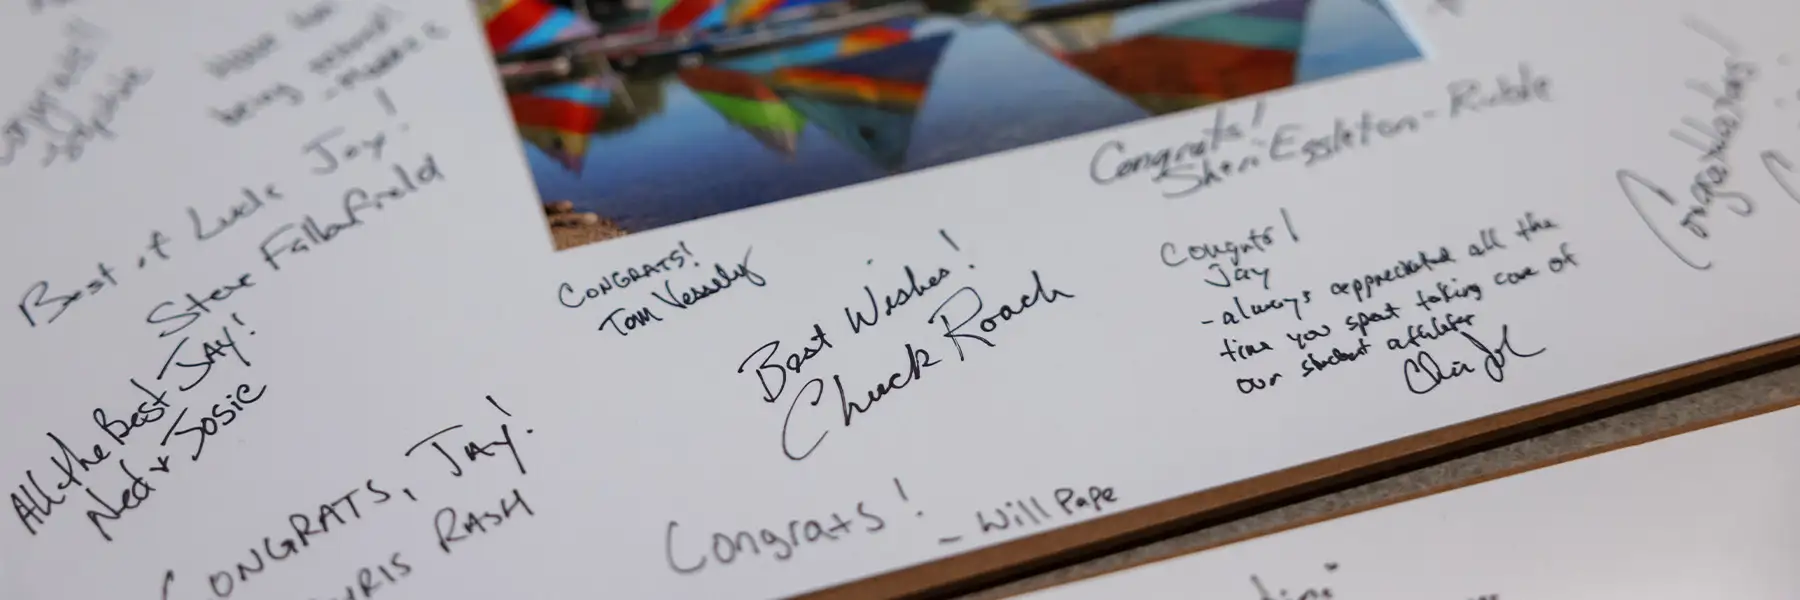 Congrats!
Sophie
being
Best of Luck Jay!
Steve Fallowfield
All the Best JAY!
Ned + Josie
CONGRATS, JAY!
CHRIS RASH
CONGRATS!
Tom Vessely
Best Wishes!
Chuck Roach
Congrats! - Will Pape
Congrats!
Sheri Eggleton-Ruble
Congrats!
Jay
- always appreciated all the
time you spent taking care of
our student affiliates
Congratulations!